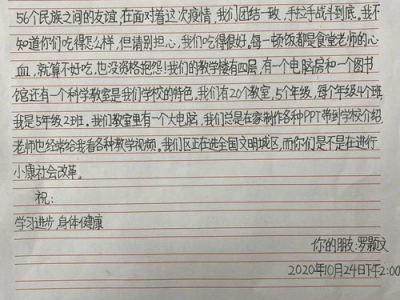 56个民族之间的友谊,在面对着这次疫情,我们团结一致,手拉手战斗到底。我不
知道你们吃得怎么样,但请别担心,我们吃得很好。每一顿饭都是食堂老师的心
血,就算不好吃,也没资格抱怨!我们的教学楼有四层,有一个电脑房和一个图书
馆还有一个科学教室是我们学校的特色,我们有20个教室,5个年级,每个年级4个班,
我是5年级2班。我们教室里有一个大电脑,我们总是在家制作各种PPT带到学校介绍
老师也经常给我看各种教学视频。我们区正在选全国文明城区,而你们是不是在进行
小康社会改革。
祝:
学习进步,身体健康
你的朋友:罗颖文
2020年10月24日下午2:00